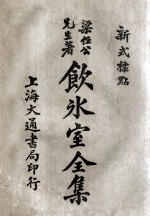 新式標點
梁任公
先生著
飲氷室全集
上海大通書局印行